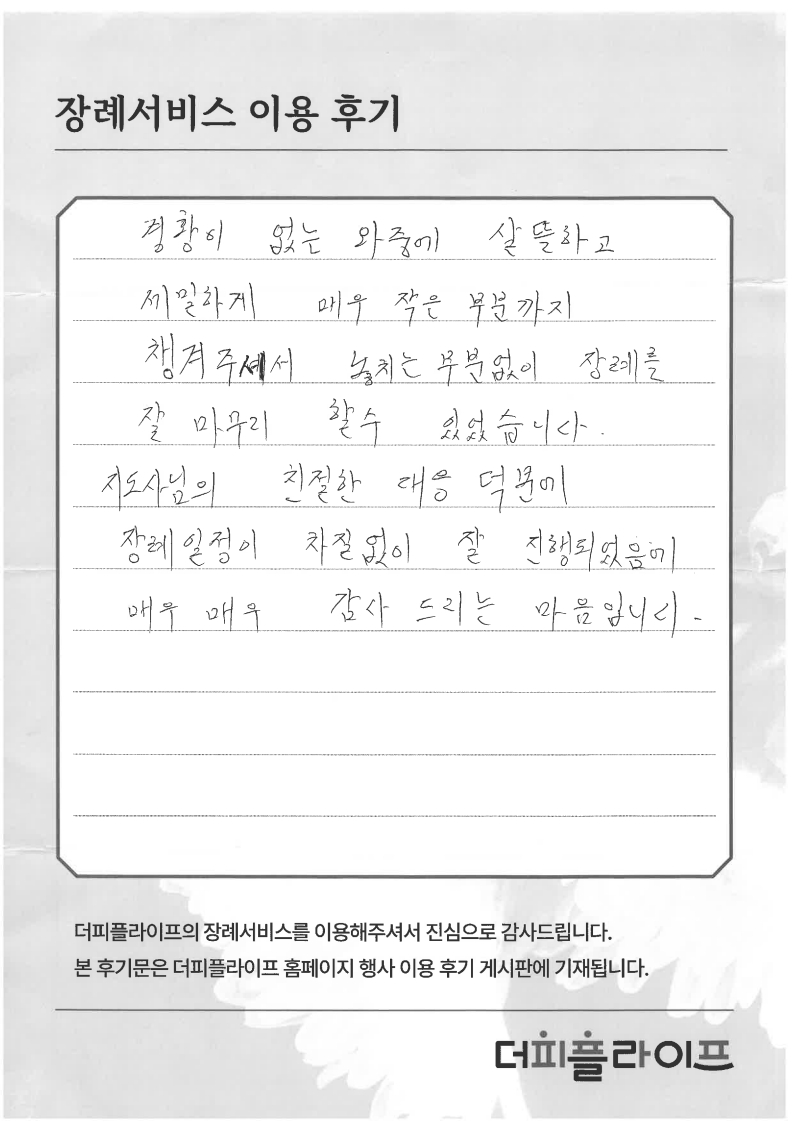 장례서비스 이용 후기
경황이 없는 와중에 살뜰하고
세밀하게 매우 작은 부분까지
챙겨주셔서 놓치는 부분없이 장례를
잘 마무리 할수 있었습니다.
지도사님의 친절한 대응 덕분에
장례일정이 차질없이 잘 진행되었음에
매우 매우 감사 드리는 마음입니다.
더피플라이프의 장례서비스를 이용해주셔서 진심으로 감사드립니다.
본 후기문은 더피플라이프 홈페이지 행사 이용 후기 게시판에 기재됩니다.
더피플라이프